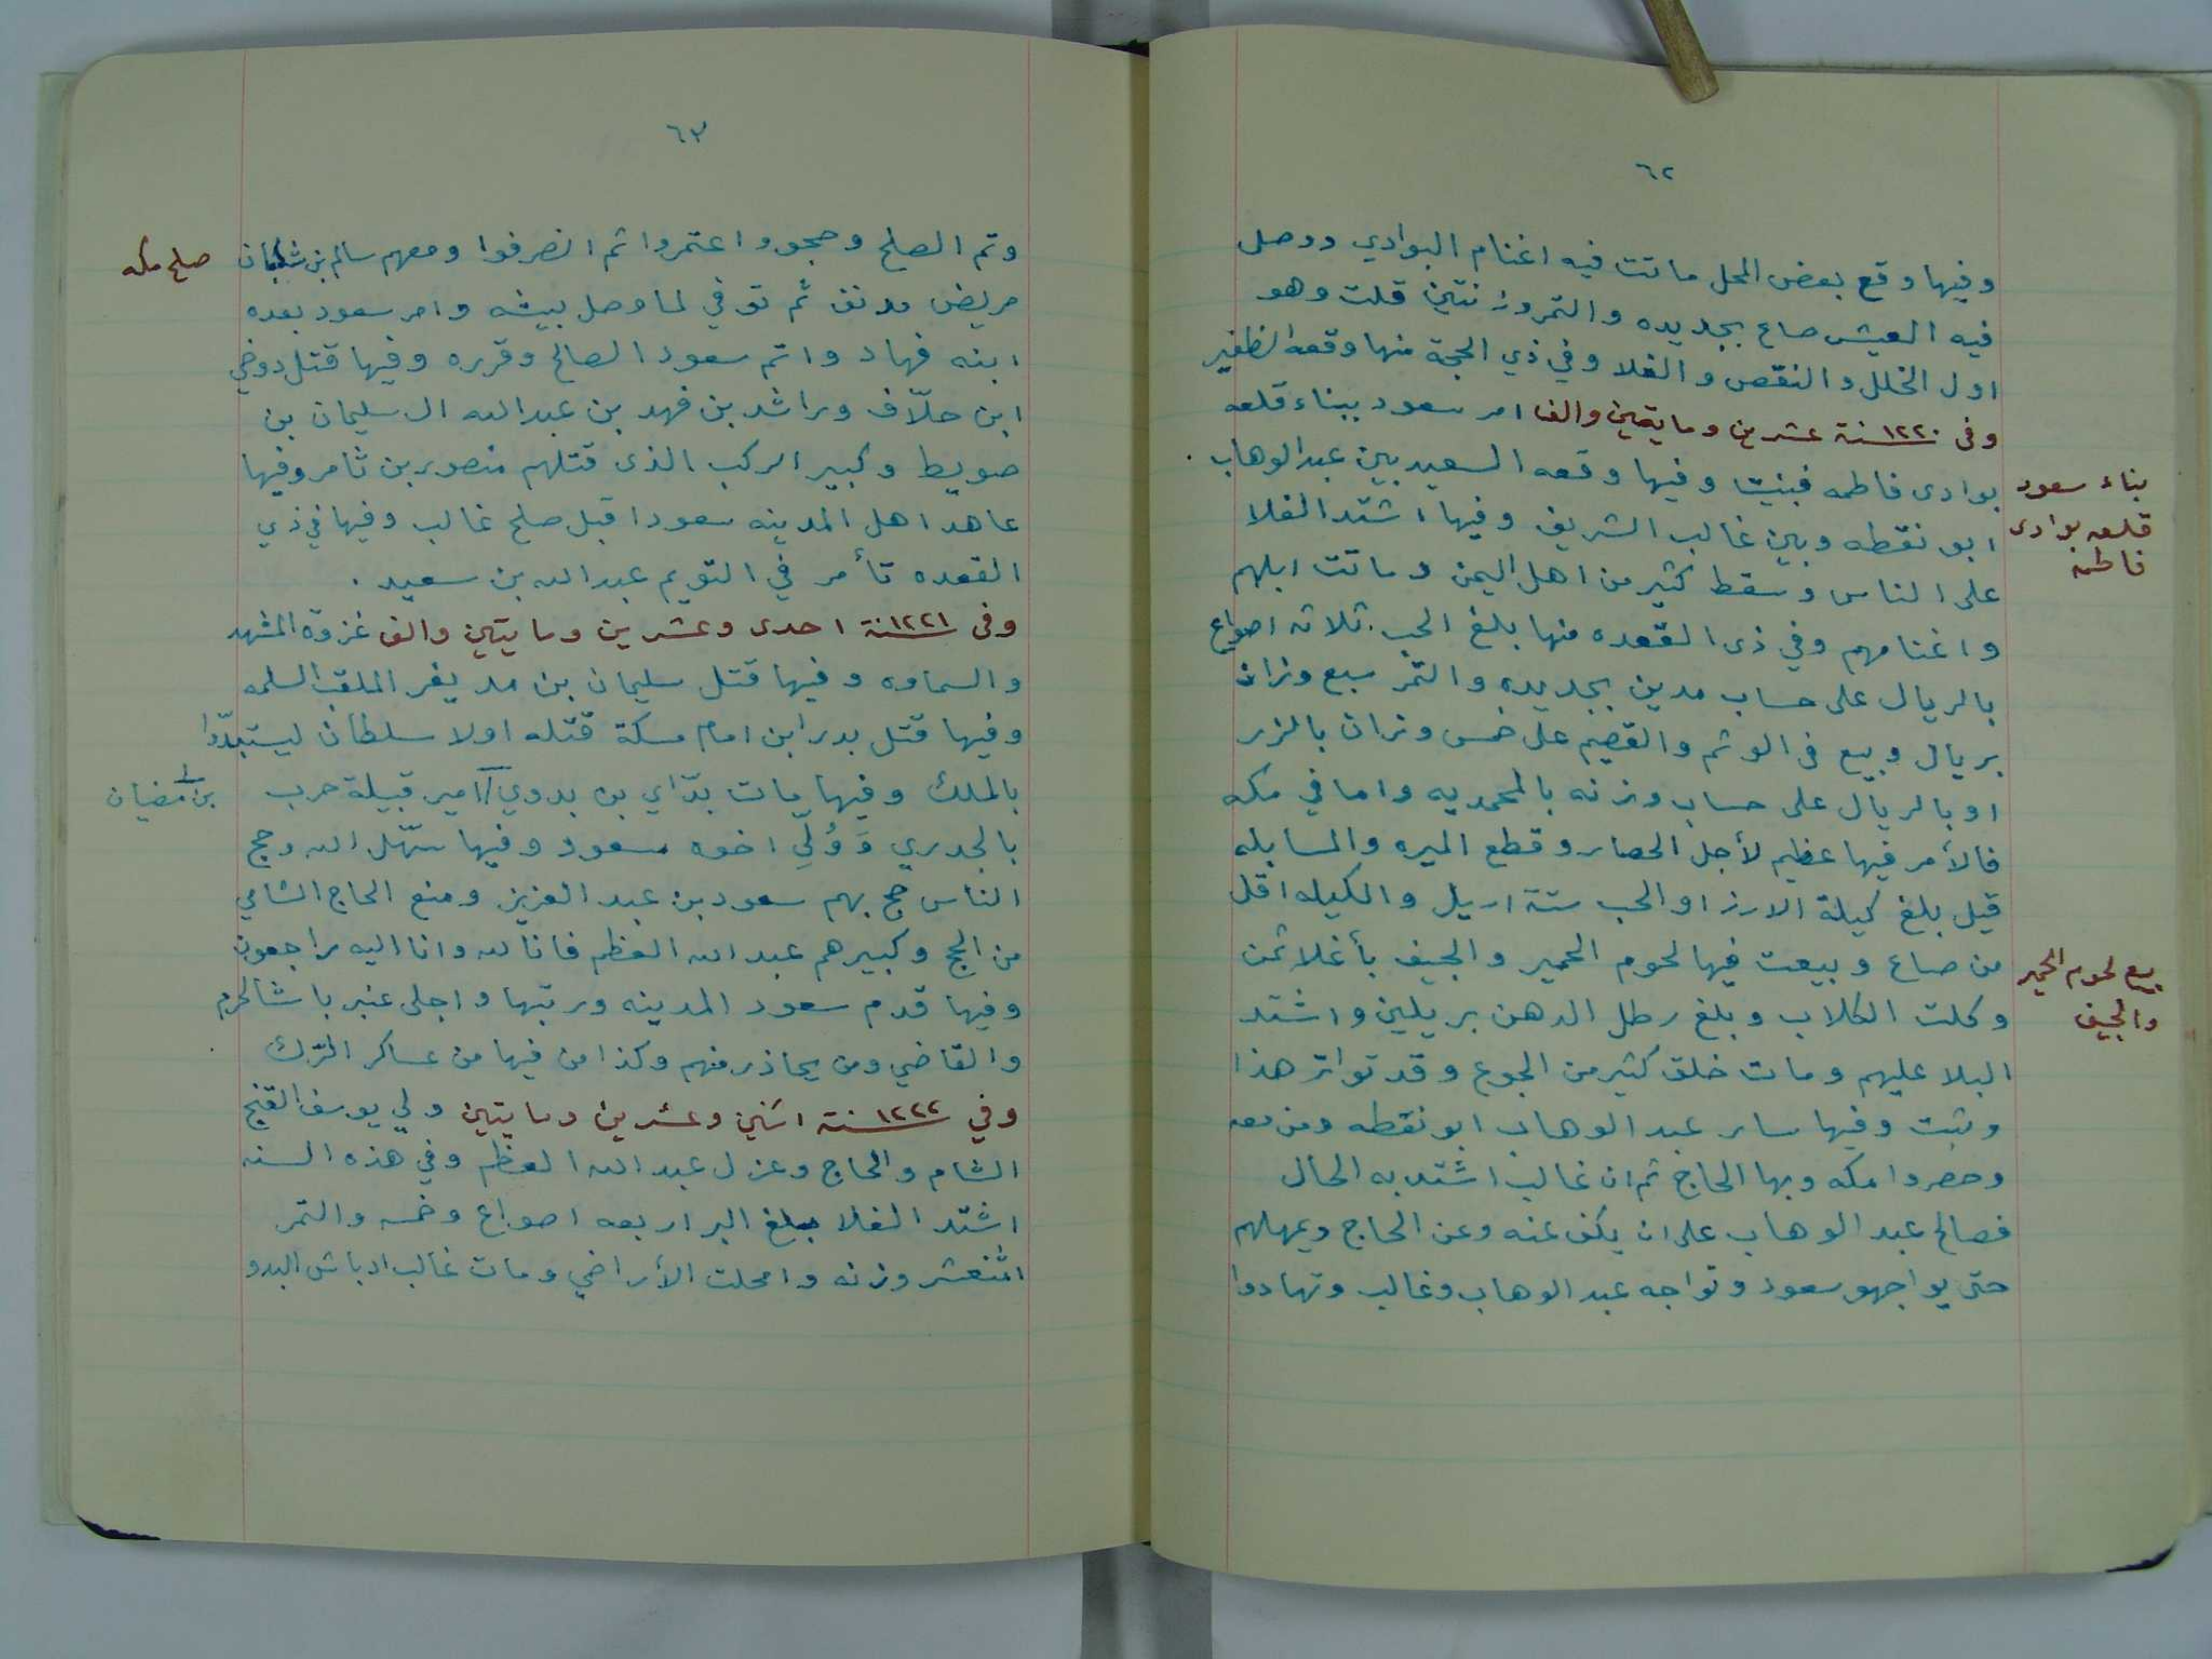 ٦٢
وفيها وقع بعض المحل ماتت فيه اغنام البوادي ووصل
فيه العيش صاع بجديده والتمر وزنتين قلت وهو
اول الخلل والنقص والغلا وفي ذي الحجة منها وقعه الظفير
وفى ١٢٢٠ سنة عشرين ومايتين والف امر سعود ببناء قلعه
بوادى فاطمه فبنيت وفيها وقعه السعيد بين عبدالوهاب .
ابو نقطه وبين غالب الشريف وفيها اشتد الغلا
على الناس وسقط كثير من اهل اليمن وماتت ابلهم
واغنامهم وفي ذى القعده منها بلغ الحب ثلاثه اصواع
بالريال على حساب مدين بجديده والتمر سبع وزران
بريال وبيع فى الوشم والقصيم على خمس وزران بالزر
او بالريال على حساب وزنه بالمحمديه واما في مكه
فالأمر فيها عظيم لأجل الحصار وقطع الميره والسابله
قيل بلغ كيلة الارز او الحب ستة اريل والكيله اقل
من صاع وبيعت فيها لحوم الحمير والجيف بأغلا ثمن
وكلت الكلاب وبلغ رطل الدهن بريلين واشتد
البلا عليهم ومات خلق كثير من الجوع وقد تواتر هذا
وثبت وفيها سار عبد الوهاب ابو نقطه ومن معه
وحصروا مكه وبها الحاج ثم ان غالب اشتد به الحال
فصالح عبد الوهاب على ان يكف عنه وعن الحاج ويمهلهم
حتى يواجهو سعود وتواجه عبد الوهاب وغالب وتهادوا
بناء سعود
قلعه بوادى
فاطمه
بيع لحوم الحمير
والجيف
٦٣
وتم الصلح وحجوو اعتمروا ثم انصرفوا ومعهم سالم بن شكبان
مريض مدنف ثم توفي لما وصل بيشه وامر سعود بعده
ابنه فهاد واتم سعود الصالح وقرره وفيها قتل دوخي
ابن حلّاف وراشد بن فهد بن عبدالله ال سليمان بن
صويط وكبير الركب الذى قتلهم منصور بن ثامر وفيها
عاهد اهل المدينه سعودا قبل صلح غالب وفيها في ذي
القعده تأمر في التويم عبد الله بن سعيد .
وفى ١٢٢١ سنة احدى وعشرين ومايتين والف غزوة المشهد
والسماوه وفيها قتل سليمان بن مديغر الملقب السلمه
وفيها قتل بدر ابن امام مسكة قتله اولا سلطان ليستبدّوا
بالملك وفيها مات بدّاي بن بدوي امير قبيلة حرب
بالجدري وَوُلّي اخوه مسعود وفيها سهّل الله وحج
الناس حج بهم سعود بن عبد العزيز ومنع الحاج الشامي
من الحج وكبيرهم عبد الله العظم فانا لله وانا اليه راجعون
وفيها قدم سعود المدينه ورتبها واجلى عنبر باشا الحرم
والقاضي ومن يحاذر منهم وكذا من فيها من عساكر الترك
وفي ١٢٢٢ سنة اثنين وعشرين ومايتين ولي يوسف القنج
الشام والحاج وعزل عبد الله العظم وفي هذه السنه
اشتد الغلا بلغ البر اربعه اصواع وخمسه والتمر
اثنعشر وزنه وامحلت الأراضي ومات غالب ادباش البدو
صلح مكه
بن مضيان